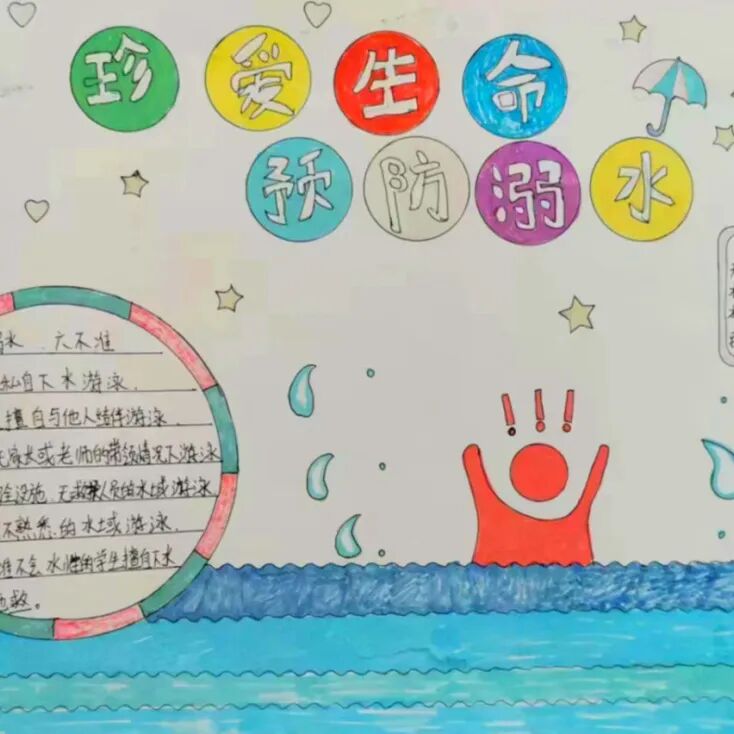 珍爱生命
预防溺水
溺水、六不准
私自下水游泳.
擅自与他人结伴游泳.
无家长或老师的带领情况下游泳
全设施、无救援人员的水域游泳
不熟悉的水域游泳.
准不会水性的学生擅自下水
施救。
!!!